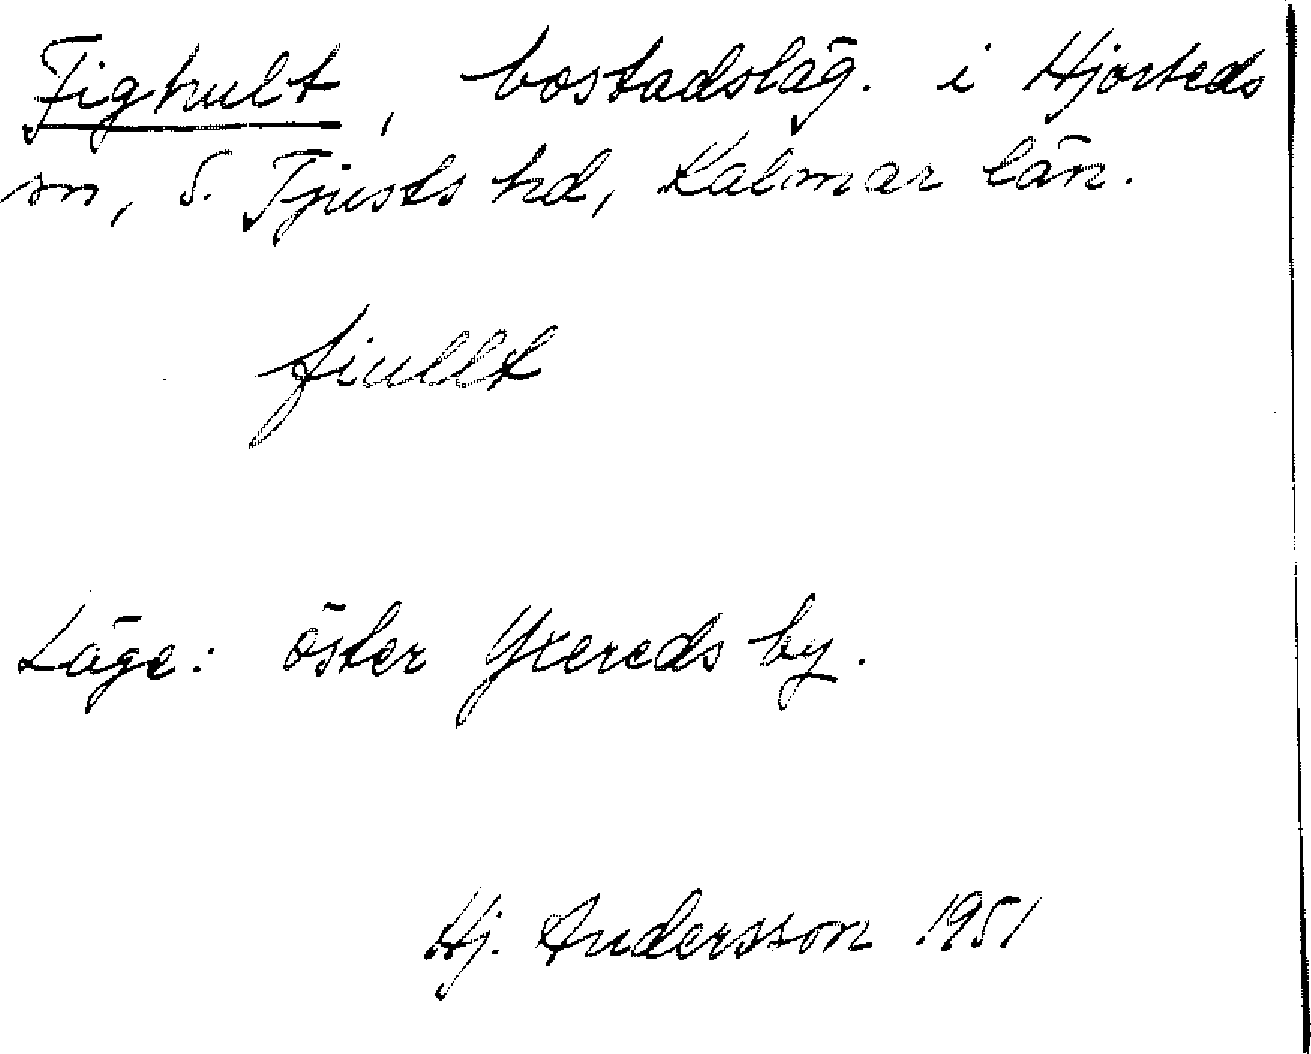 Fighult, bostadsläg. i Hjorteds
sn, S. Tjusts hd, Kalmar län.
fiullt
Läge: öster Yxereds by.
Hj. Andersson 1951